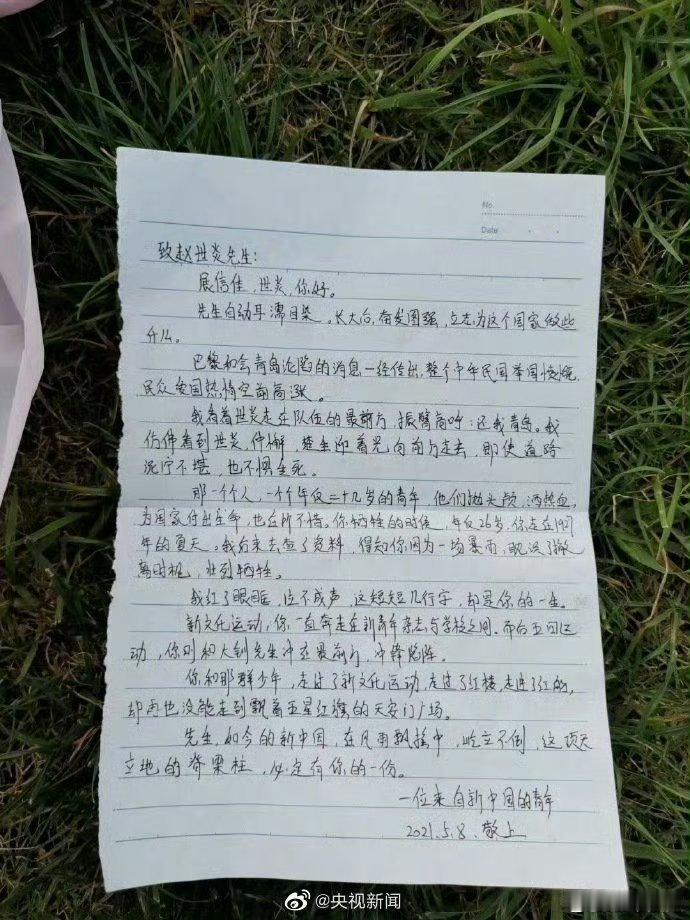 No.
Date
致赵世炎先生:
展信佳,世炎,你好。
先生自幼耳濡目染。长大后,奋发图强,立志为这个国家做些
什么。
巴黎和会青岛沦陷的消息一经传出,整个中华民国举国愤慨,
民众爱国热情空前高涨。
我看着世炎走在队伍的最前方,振臂高呼:还我青岛。我
仿佛看到世炎,仲甫,楚生迎着光向前方走去,即使道路
泥泞不堪,也不惧生死。
那一个个人,一个个年仅二十几岁的青年,他们抛头颅,洒热血,
为国家付出生命,也在所不惜。你牺牲的时候,年仅26岁,你走在1927
年的夏天。我后来去查了资料,得知你因为一场暴雨,耽误了撤
离时机,壮烈牺牲。
我红了眼眶,泣不成声,这短短几行字,却是你的一生。
新文化运动,你一直奔走在新青年杂志与学校之间。而白五四运
动,你则和大钊先生冲在最前方,冲锋陷阵。
你和那群少年,走过了新文化运动,走过了红楼,走过了红船,
却再也没能走到飘着五星红旗的天安门广场。
先生,如今的新中国,在风雨飘摇中,屹立不倒,这顶天
立地的脊梁柱,必定有你的一份。
一位来自新中国的青年
2021.5.8.敬上
@央视新闻